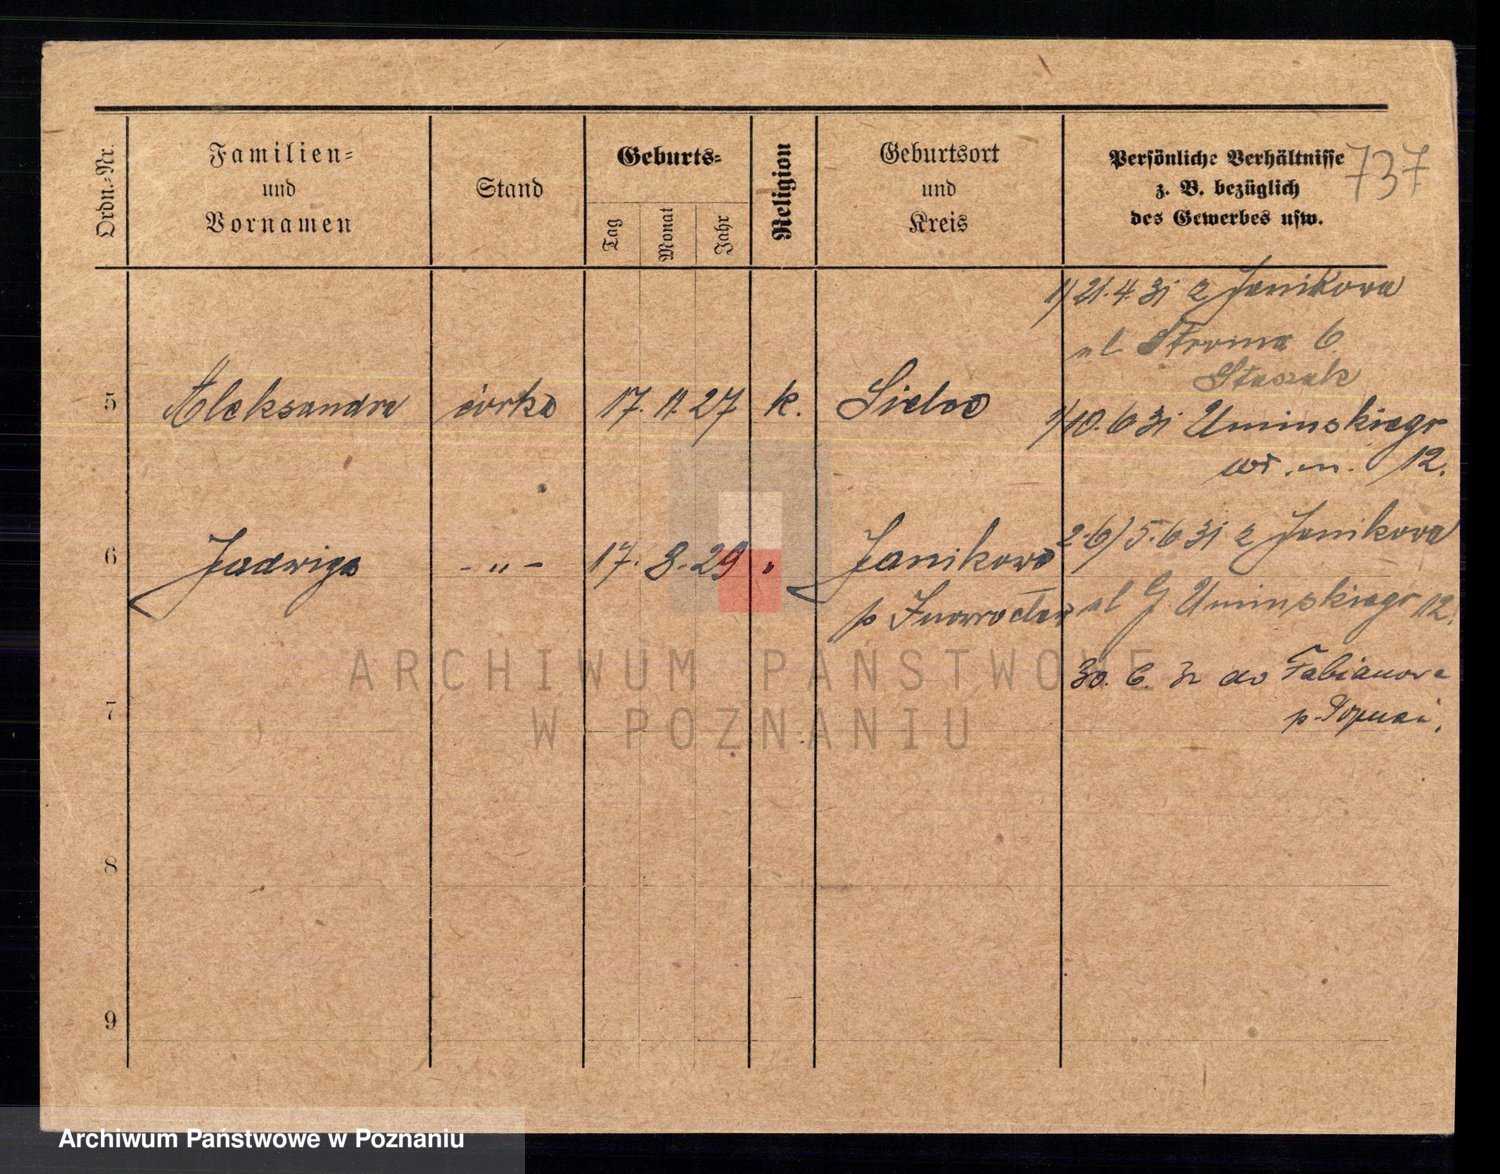 Ordn.-Nr.
Familien-
und
Vornamen
Stand
Geburts-
Tag
Monat
Jahr
Religion
Geburtsort
und
Kreis
Persönliche Verhältnisse
z. B. bezüglich
des Gewerbes usw.
737
1/ 21.4.31 z Janikowa
ul Stroma 6
Staszak
5 Aleksandra córka 17. 11. 27 k. Sielce
1/10.6 31 Uminskiego
12.
6 Jadwiga - „ - 17. 8. 29 „ Janikowo
p Inowrocław
2-6/5.6 31 z Janikowa
ul G Uminskiego 12.
30. 6. 31 do Fabianowa
p. Poznań.
7
8
9
ARCHIWUM PAŃSTWOWE
W POZNANIU
Archiwum Państwowe w Poznaniu